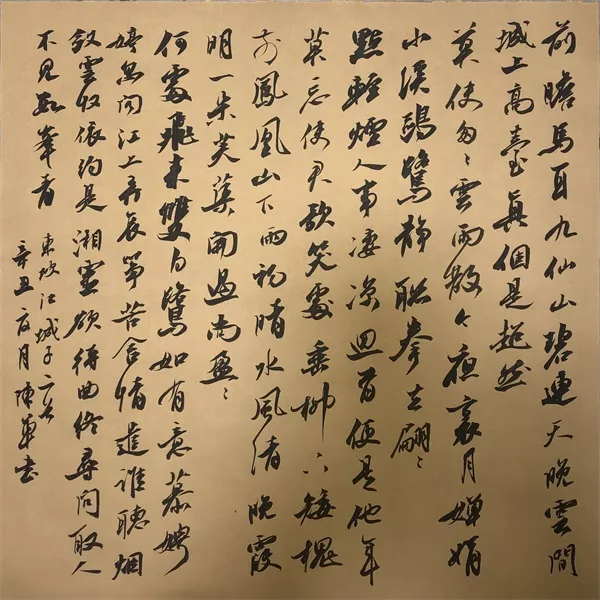 前瞻馬耳九仙山碧連天晚雲間
城上高臺真個是超然
莫使匆〻雲雨散今夜裏月嬋娟
小溪鷗鷺靜聯拳去翩〻
點輕煙人事淒涼回首便是他年
莫忘使君歌笑處垂柳下矮槐
前鳳凰山下雨初晴水風清晚霞
明一朵芙蕖開過尚盈〻
何處飛來雙白鷺如有意慕娉
婷忽聞江上弄哀箏苦含情遣誰聽煙
斂雲收依約是湘靈欲待曲終尋問取人
不見數峯青
東坡江城子二首
辛丑夏月陳書